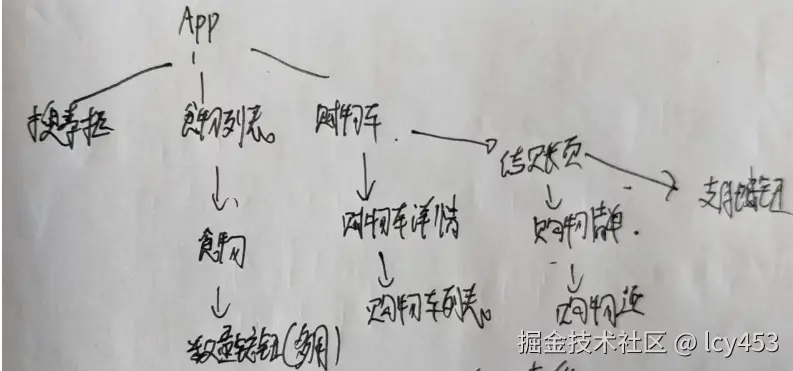 App
搜索框 食物列表。 购物车 结账页 支付按钮
食物 购物车详情 购物清单
数量按钮(多用) 购物车列表。 购物项
掘金技术社区 @ lcy453